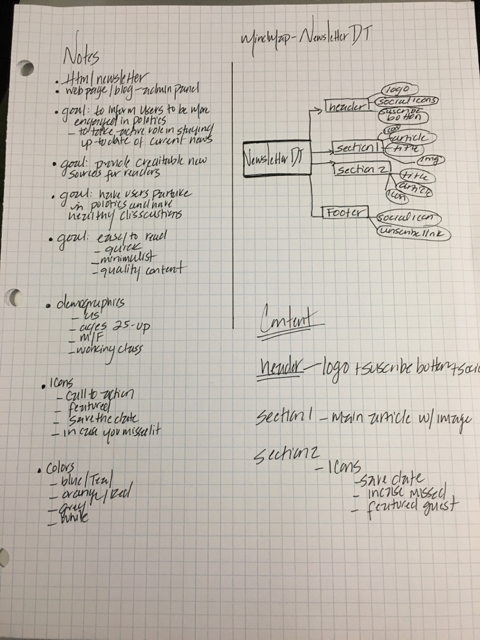 Notes
• Html/newsletter
• web page/blog - admin panel
• goal: to inform users to be more
engaged in politics
- to take active role in staying
up to date of current news
• goal: provide credible new
sources for readers
• goal: have users partake
in politics and have
healthy discusstions
• goal: easy to read
- quick
- minimulist
- quality content
• demographics
- US
- ages 25-up
- M/F
- working class
• Icons
- call to action
- featured
- save the date
- in case you missed it
• Colors
- blue/Teal
- orange/Red
- gray
- white
MindMap - Newsletter DT
Newsletter DT
header
logo
social icons
suscribe
botton
section 1
article
title
img
section 2
title
article
icon
Footer
social icon
unscribe link
Content
header - logo + suscribe botton + soci
section 1 - main article w/ image
section 2
- Icons
- save date
- incase missed
- featured guest